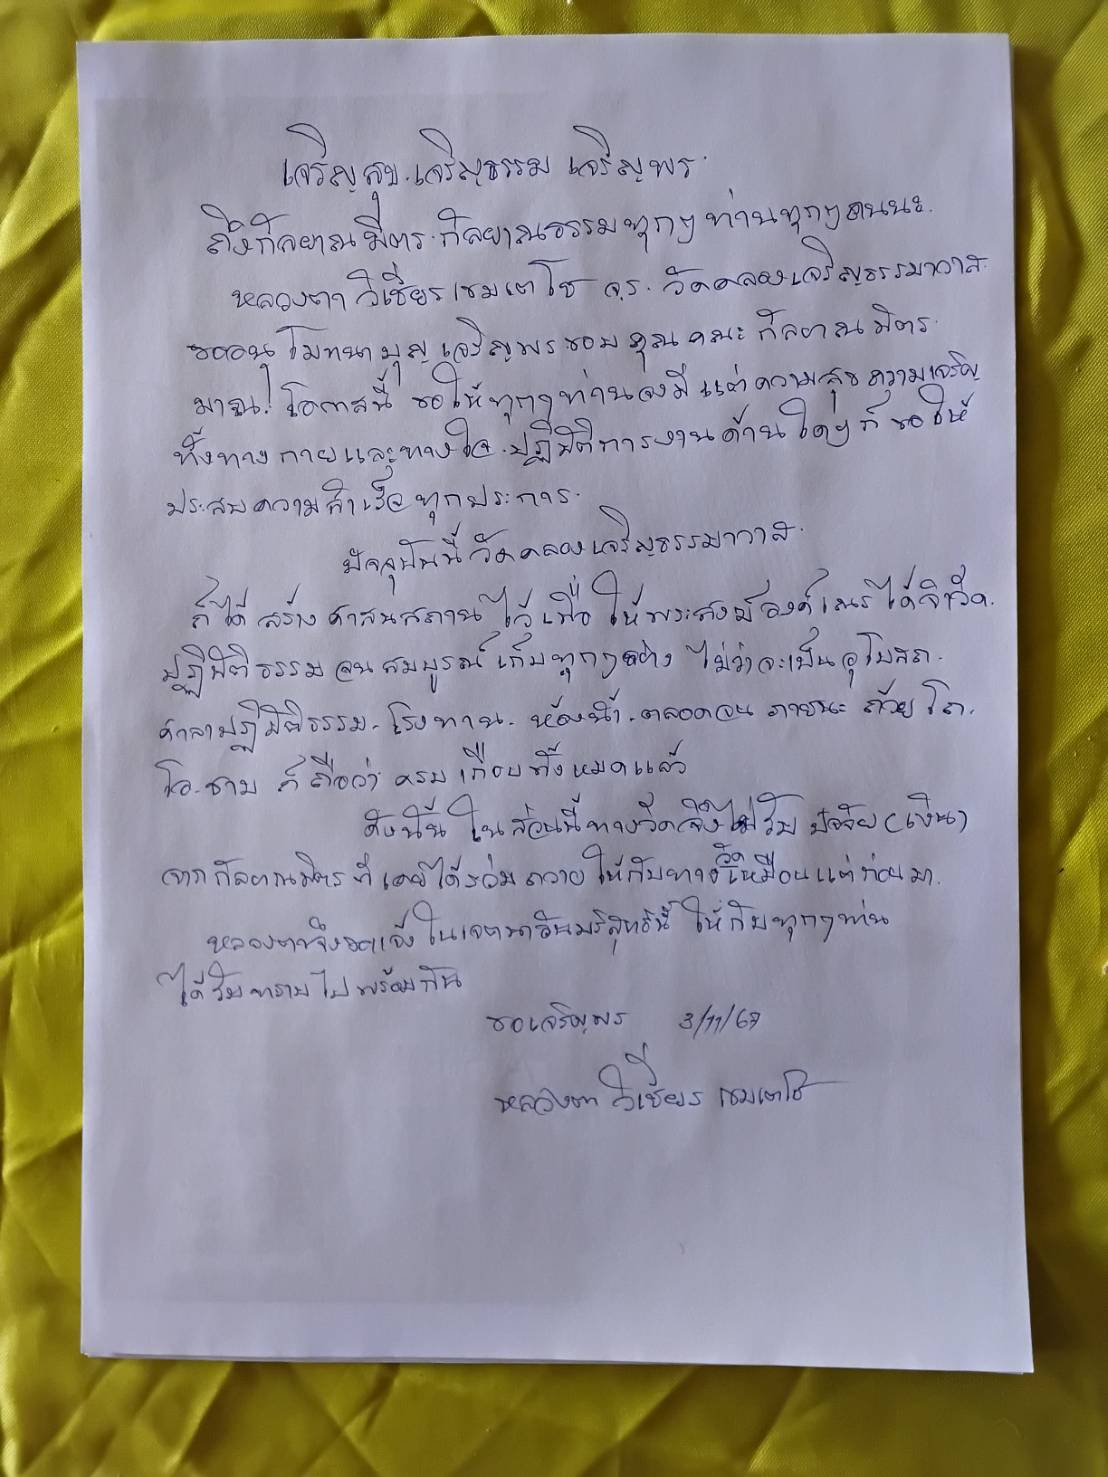 เจริญสุข.เจริญธรรม เจริญพร.
ถึงกัลยาณมิตร.กัลยาณธรรมทุกๆท่านทุกๆคณะ.
หลวงตา วิเชี่ยร เขมเตโช จ.ร. วัดคลองเจริญธรรมาวาส.
ขออนุโมทนาบุญ เจริญพรขอบคุณคณะกัลยาณมิตร.
มาณ.โอกาสนี้ ขอให้ทุกๆท่านจงมีแต่ความสุขความเจริญ
ทั้งทางกายและทางใจ.ปฏิบัติการงานด้านใดๆก็ขอให้
ประสบความสำเร็จทุกประการ.
ปัจจุบันนี้วัดคลองเจริญธรรมาวาส.
ก็ได้สร้างศาสนสถานไว้เพื่อให้พระสงฆ์องค์เณรได้จำวัด.
ปฏิบัติธรรมจนสมบูรณ์เกือบทุกๆอย่าง ไม่ว่าจะเป็นอุโบสถ.
ศาลาปฏิบัติธรรม.โรงทาน.ห้องน้ำ.ตลอดจนภาชนะ ถ้วยโถ.
โอ.ชาม ก็ถือว่า ครบเกือบทั้งหมดแล้ว
ดังนั้น ในส่วนนี้ทางวัดจึงไม่รับ ปัจจัย(เงิน)
จากกัลยาณมิตรที่เคยได้ร่วมถวายให้กับทางวัดเหมือนแต่ก่อนมา.
หลวงตาจึงขอแจ้งในเจตนาอันบริสุทธิ์นี้ ให้กับทุกๆท่าน
ได้รับทราบไปพร้อมกัน
ขอเจริญพร 3/11/67
หลวงตา วิเชี่ยร เขมเตโช